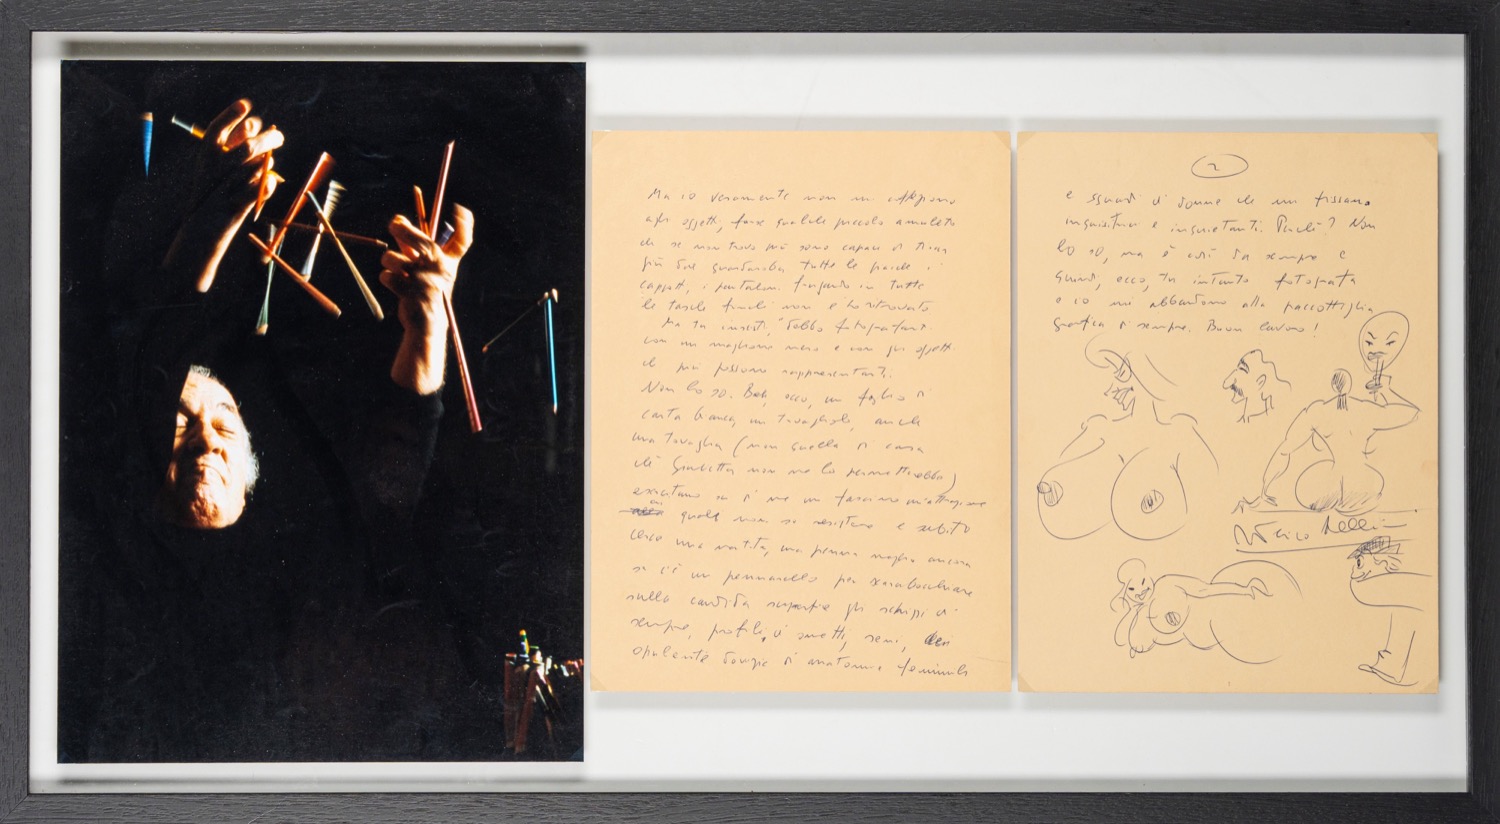 Ma io veramente non mi affeziono
agli oggetti, forse qualche piccolo amuleto
che se non trovo più sono capace di tirar
giù dal guardaroba tutte le giacche i
cappotti, i pantaloni frugando in tutte
le tasche finché non l'ho ritrovato
Ma tu insisti, "debbo fotografarti
con un maglione nero e con gli oggetti
che più possono rappresentarti.
Non lo so. Beh, ecco, un foglio di
carta bianca, un tovagliolo, anche
una tovaglia (non quella di casa
ché Giulietta non me lo permetterebbe)
esercitano su di me un fascino un'attrazione
cui quali non so resistere e subito
cerco una matita, una penna meglio ancora
se c'è un pennarello per scarabocchiare
sulla candida superficie gli schizzi di
sempre, profili, di ometti, seni,
opulente donzie di anatomie femminili
2
e sguardi di donne che mi fissano
inquisitori e inquietanti. Perché? Non
lo so, ma è così da sempre e
guardi, ecco, tu intanto fotografa
e io mi abbandono alla paccottiglia
grafica di sempre. Buon lavoro!